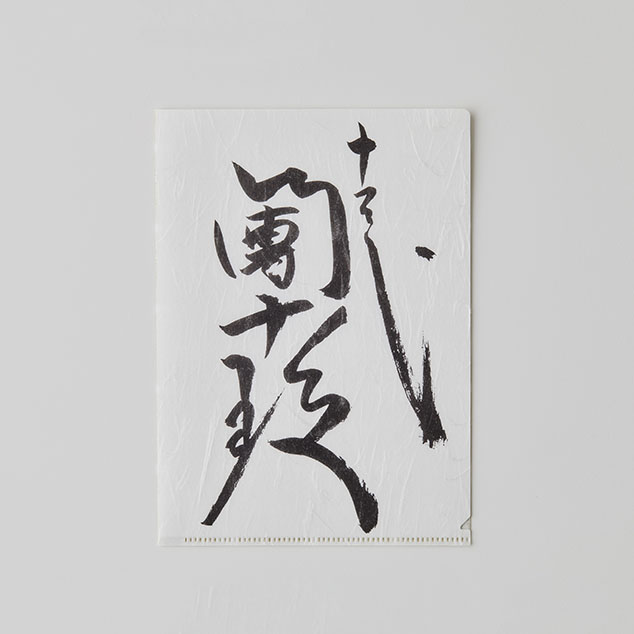 十三代
團十郎